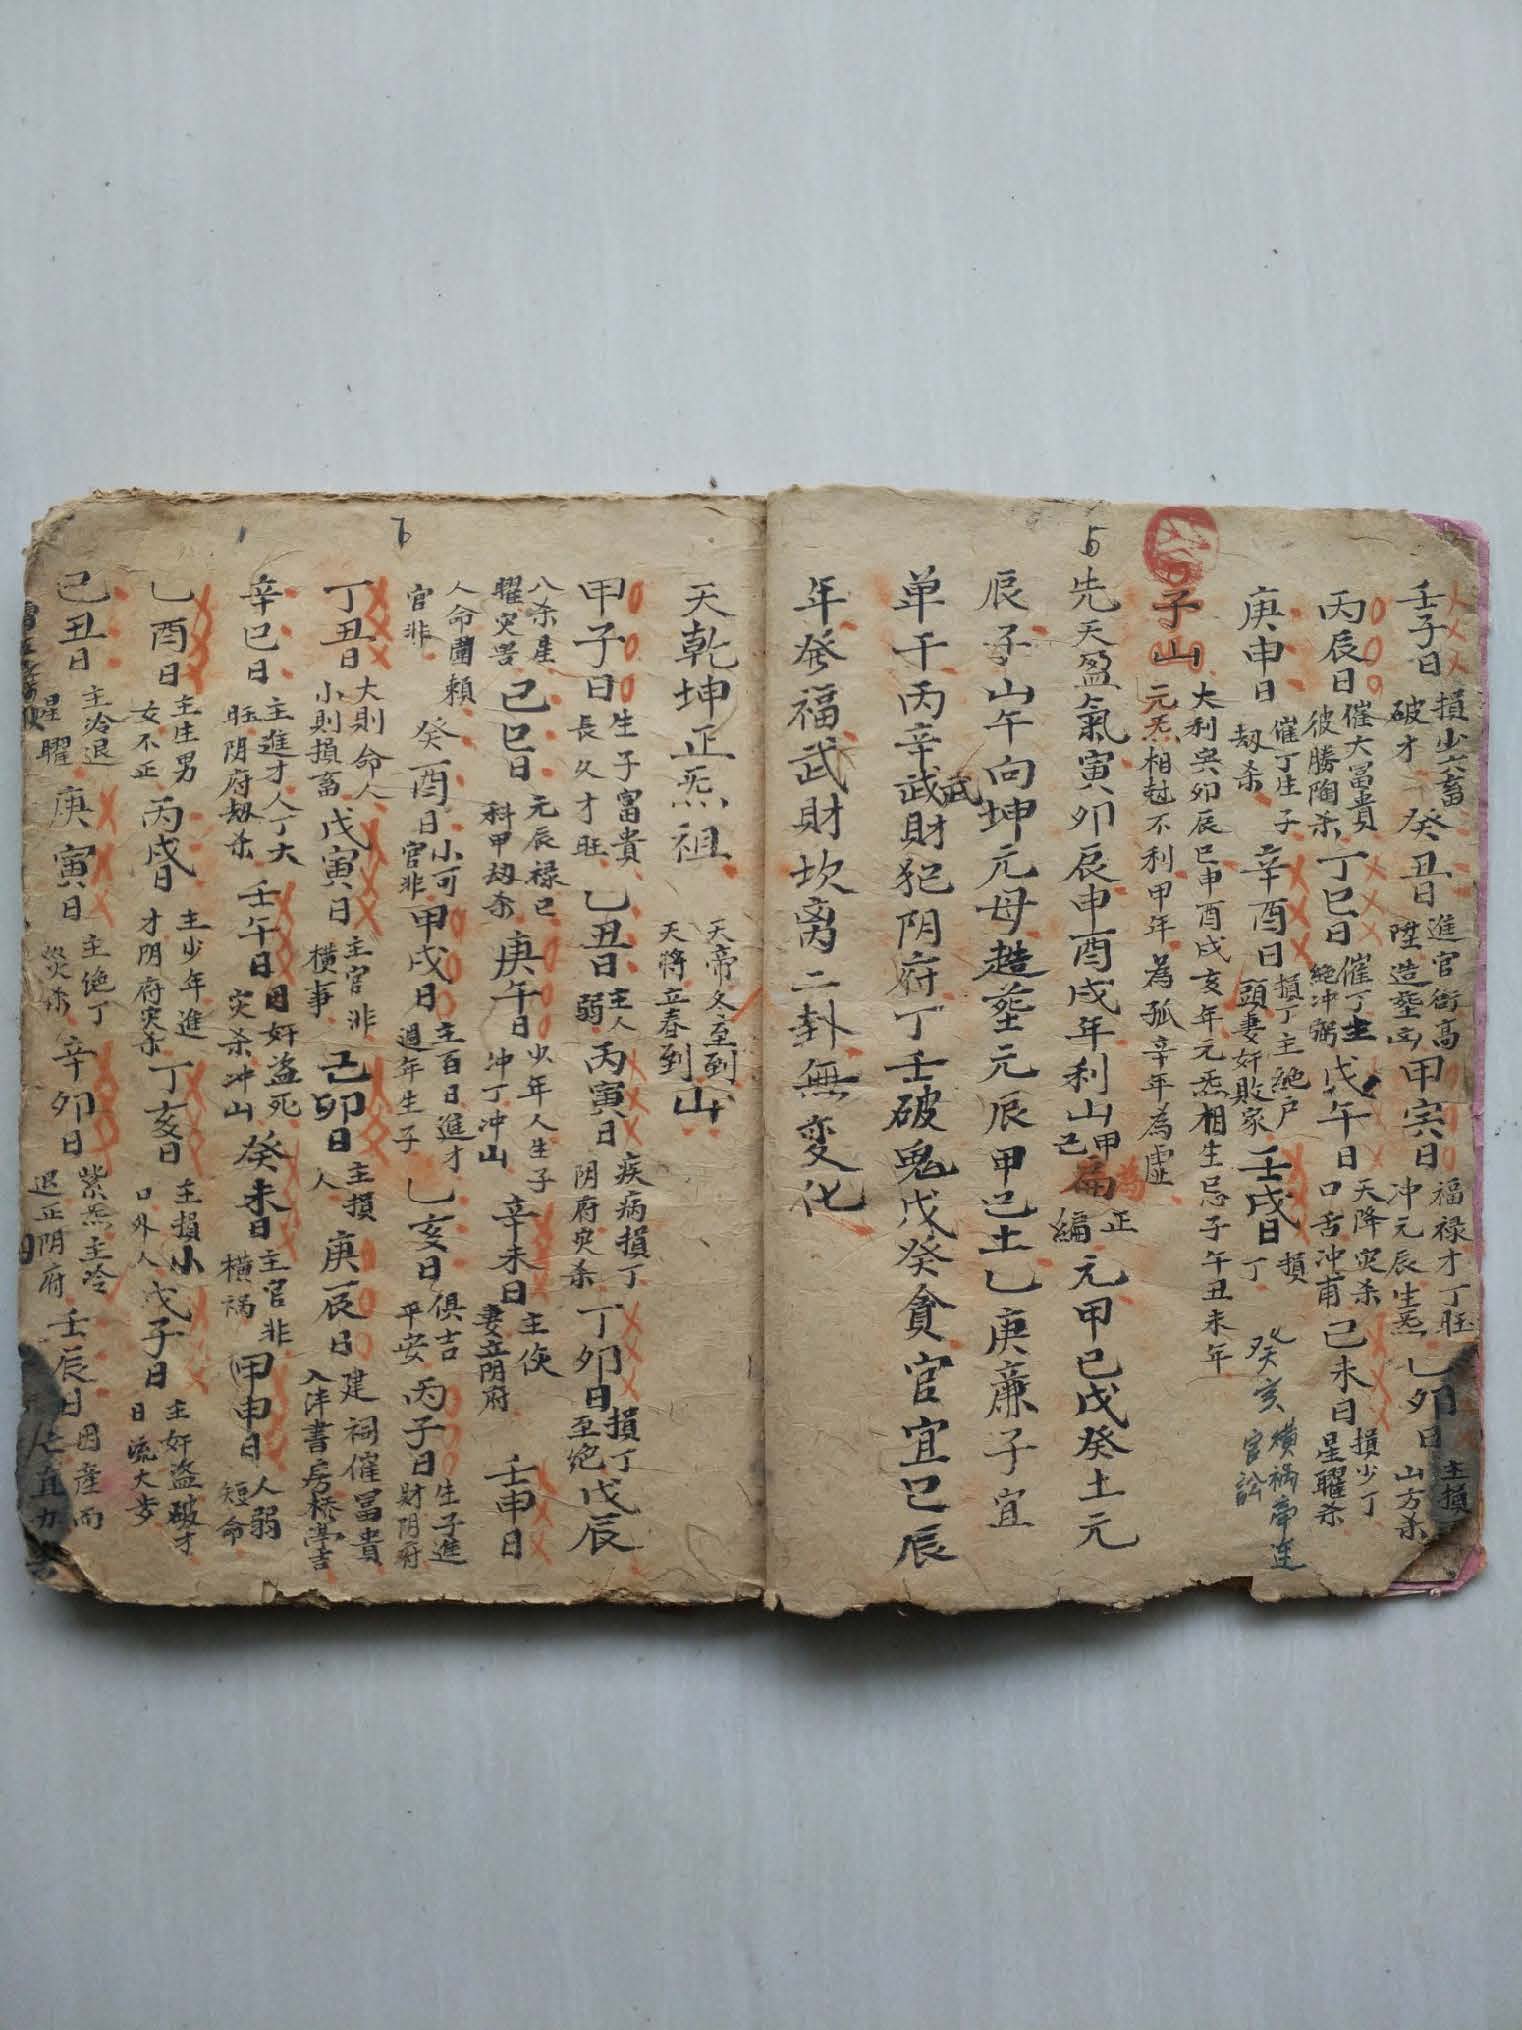 5
壬子日 損少六畜 破才 癸丑日 進官衙高 陞造塟凶 甲寅日 福禄才丁旺 冲元辰生炁 乙卯日 主損 山方杀
丙辰日 催大冨貴 彼勝陶杀 丁巳日 催丁主 絶冲 戊午日 天降灾杀 口舌冲甫 己未日 損少丁 星曜杀
庚申日 催丁生子 刼杀 辛酉日 損丁主絶户 頭妻奸敗家 壬戌日 損丁 癸亥 横祸帝连 官訟
子山 大利寅卯辰巳申酉戌亥年元炁相生忌子午丑未年
元炁相尅不利甲年為孤辛年為虚
先天盈氣寅卯辰申酉戌年利山甲己為正編元甲己戊癸土元
辰子山午向坤元母造塟元辰甲己土乙庚廉子宜
单干丙辛武武財犯阴府丁壬破鬼戊癸貪官宜己辰
年發福武財坎离二卦無变化
6
天乾坤正炁祖 天帝冬至到 天將立春到 山
甲子日 生子富貴 長久才旺 乙丑日 主人弱 丙寅日 疾病損丁 阴府灾杀 丁卯日 損丁至绝 戊辰
八杀産 曜灾害 己巳日 元辰禄已 科甲刼杀 庚午日 少年人生子 冲丁冲山 辛未日 主侫 妻立阴府 壬申日
人命圖賴 官非 癸酉日 小可官非 甲戌日 主百日進才 週年生子 乙亥日 俱吉平安 丙子日 生子進 財阴府
丁丑日 大則命人 小則損畜 戊寅日 主官非 横事 己卯日 主損人 庚辰日 建祠催冨貴 入泮書房桥亭吉
辛巳日 主進才人丁大 旺阴府刼杀 壬午日 日奸盗死 灾杀冲山 癸未日 主官非 横祸 甲申日 人弱短命
乙酉日 主庄男 女不正 丙戌日 主少年進 才阴府灾杀 丁亥日 主損小 口外人 戊子日 主奸盗破才 日流大步
己丑日 主冷退 星曜 庚寅日 主绝丁 災杀 辛卯日 紫炁主冷 退正阴府 壬辰日 因產而